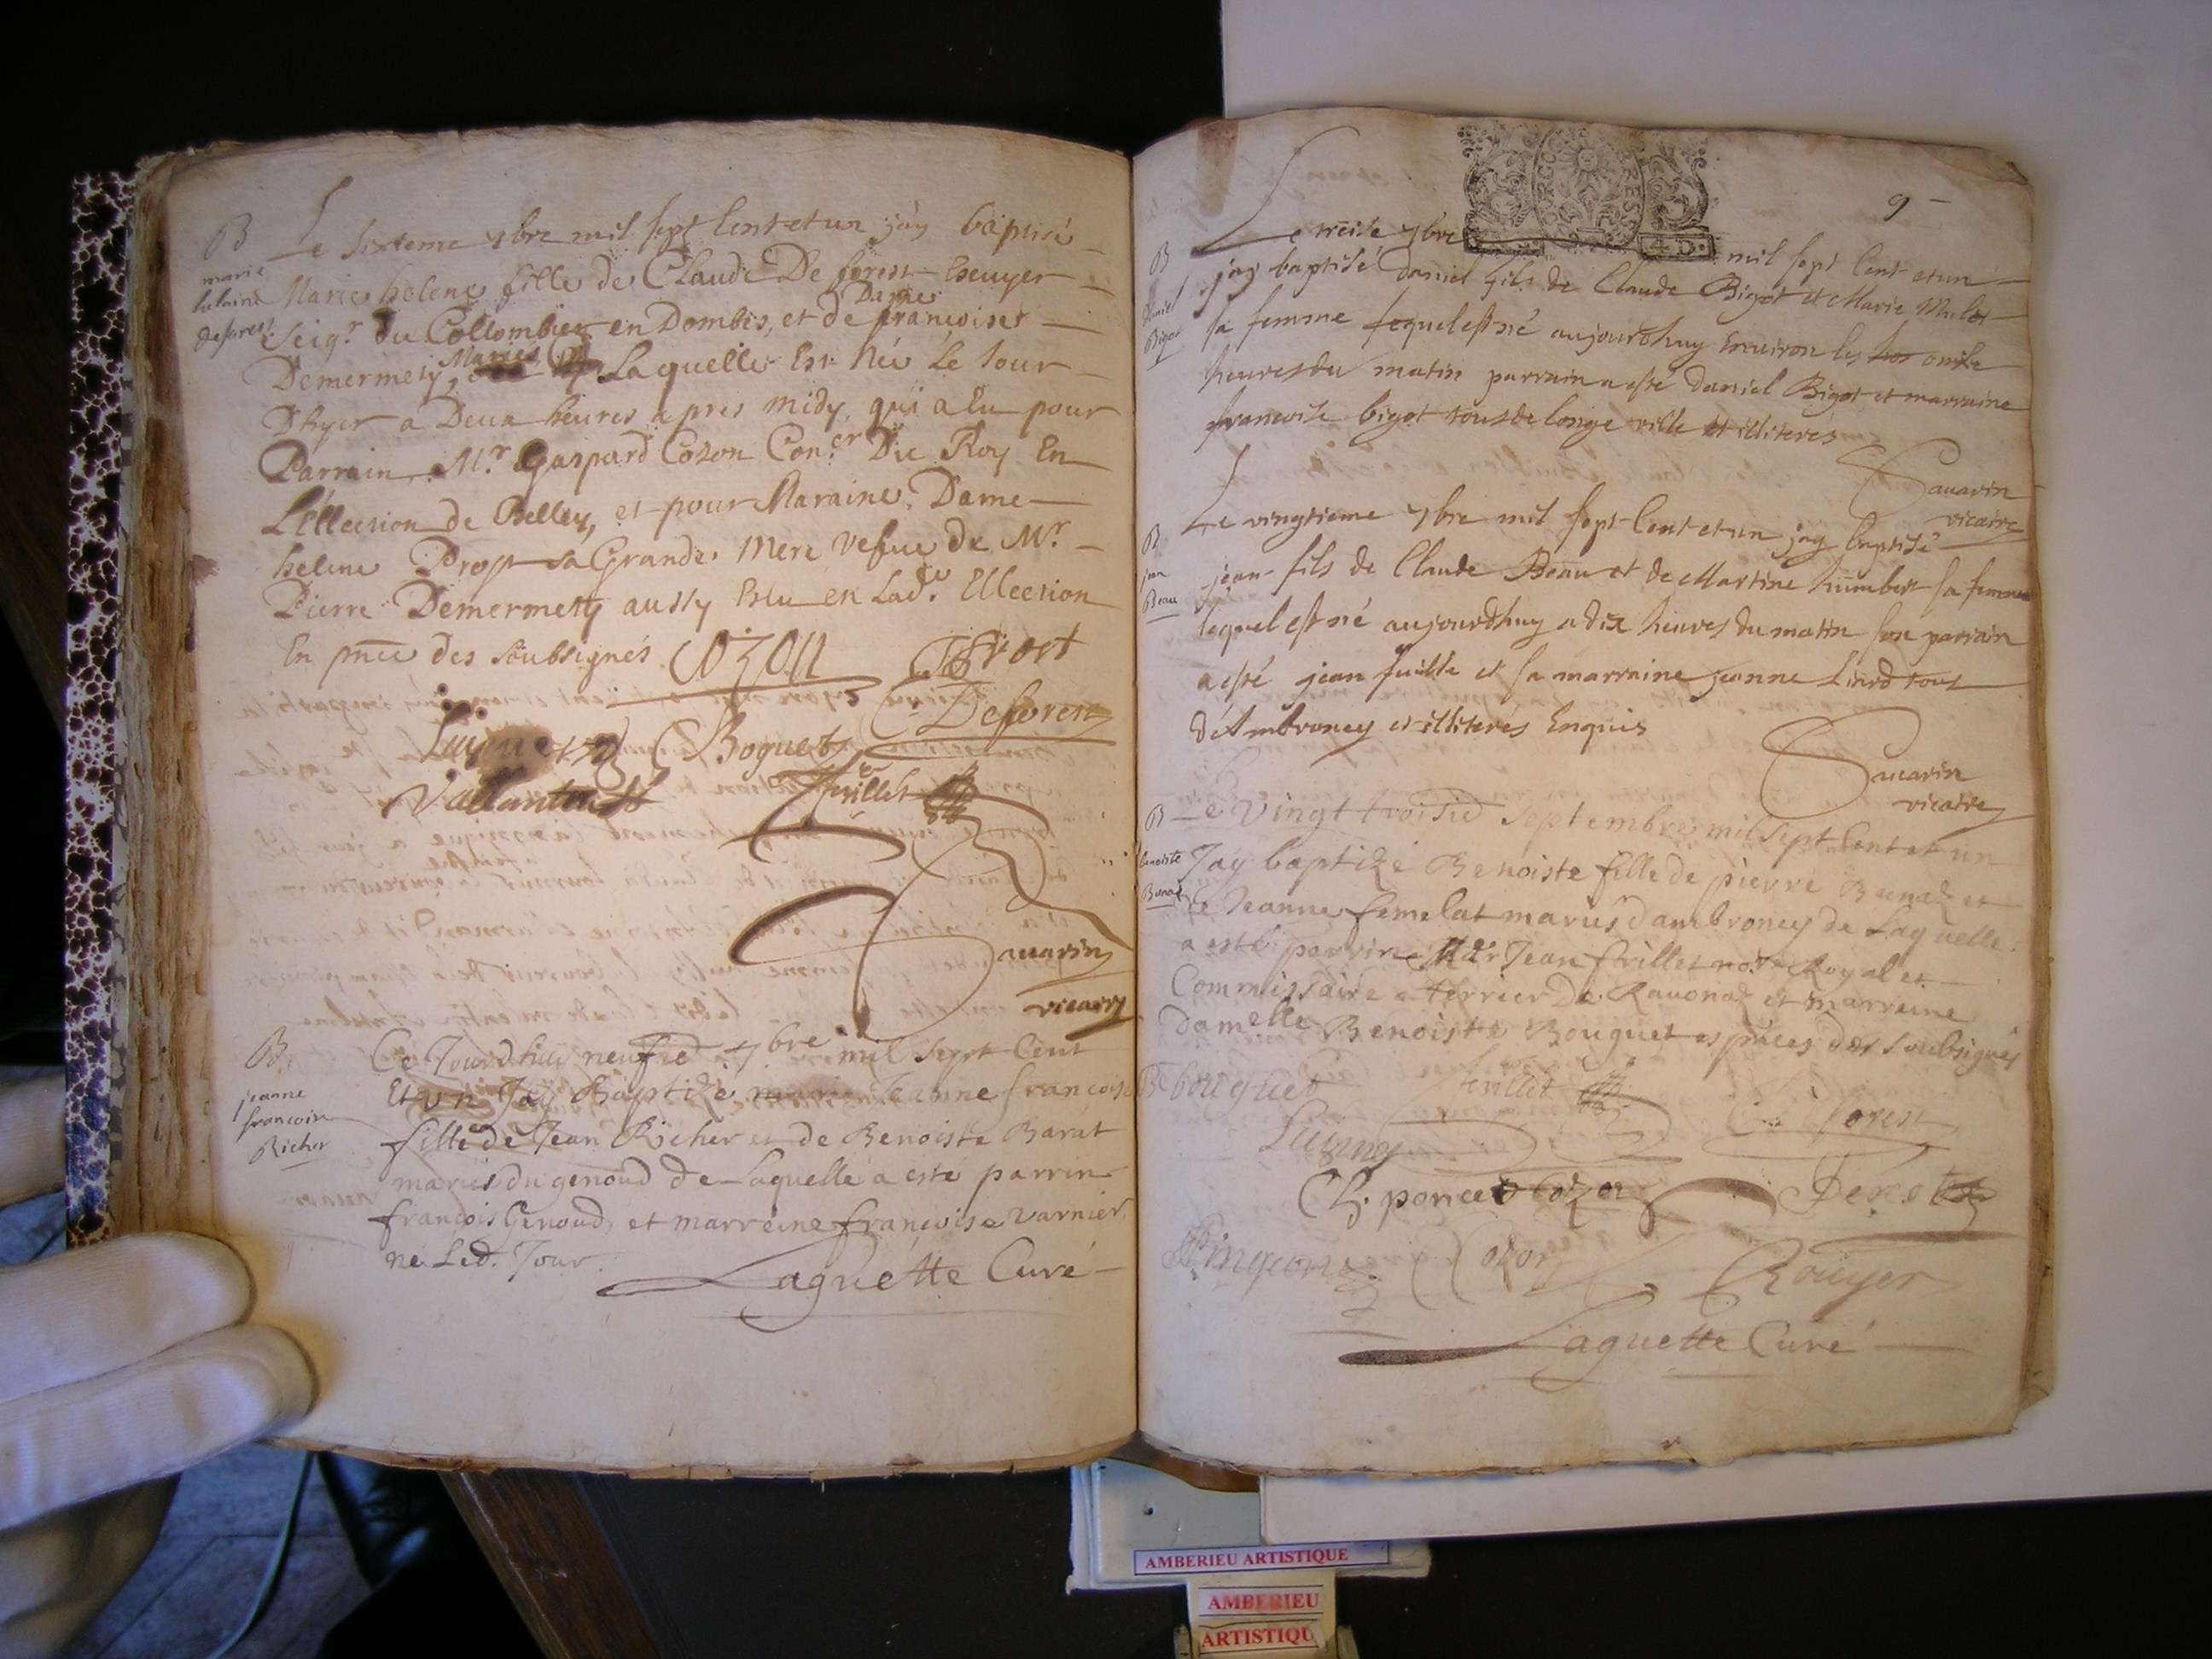 B
marie
helaine
deforest
Le sixieme 7bre mil sept Cent et un j'ay baptisé
Marie helene fille de Claude De forest Escuyer
Seigr du Collombier en Dombes, et de Dame francoise
Demermety Mariés Laquelle Est Née Le Jour
D'hyer a Deux heures apres midy, qui a Eu pour
Parrain Mr Gaspard Cozon Coner Du Roy En
L'éllection de Belley, et pour Maraine Dame
helene Prost sa Grande Mere vefue de Mr
Pierre Demermety aussy Esleu en Lade Ellection
En pnce des soubsignés
Cozon
Prost
C Deforest
Boguet
feuillet
Sauarin
vicaire
B
jeanne
francoise
Richer
Ce Jourdhuy neufie 7bre mil sept Cent
Et un Jay Baptizé marie Jeanne francoise
fille de Jean Richer et de Benoiste Barat
mariés du genoud de Laquelle a esté parrin
francois Genoud, et marreine francoise varnier
né Led. Jour.
Laguette Curé
9
4 D.
B
daniel
Bigot
Le treise 7bre mil sept Cent et un
jay baptisé daniel fils de Claude Bigot et Marie Mulot
sa femme lequel est né aujourdhuy Enuiron les onse
heures du matin parrain a esté daniel Bigot et marraine
francoise bigot tous de longe ville et illiteres
Sauarin
vicaire
B
jean
Beau
Le vingtieme 7bre mil sept Cent et un jay baptisé
jean fils de Claude Beau et de Martine humbert sa femme
lequel est né aujourdhuy a dix heures du matin son parrain
a esté jean et sa marraine jeanne tous
d'Ambroney et illiterés Enquis
Sauarin
vicaire
B
benoiste
Bunaz
Le Vingt troisie Septembre mil Sept Cent et un
Jay baptizé Benoiste fille de pierre Bunaz et
de Jeanne femelat mariés d'ambroney de Laquelle
a esté parrin Jean feuillet Royal et
Commissaire a terrier De Rauonaz et marreine
damelle Benoiste Bouguet es pnces des Soubsignés
B bouguet
feuillet
Ch. poncet Cozon
Cozon
Rouyer
Laguette Curé
AMBERIEU ARTISTIQUE
AMBERIEU
ARTISTIQU